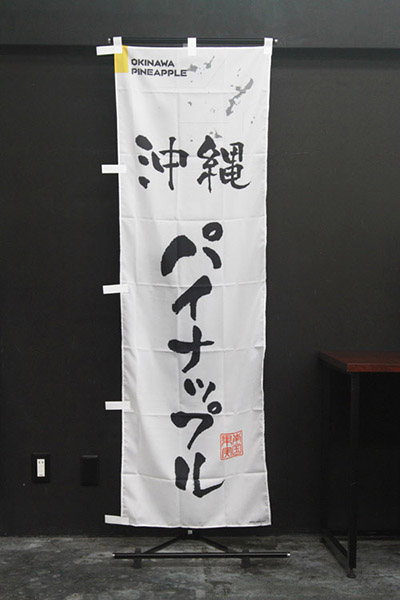 OKINAWA
PINEAPPLE
沖縄
パイナップル